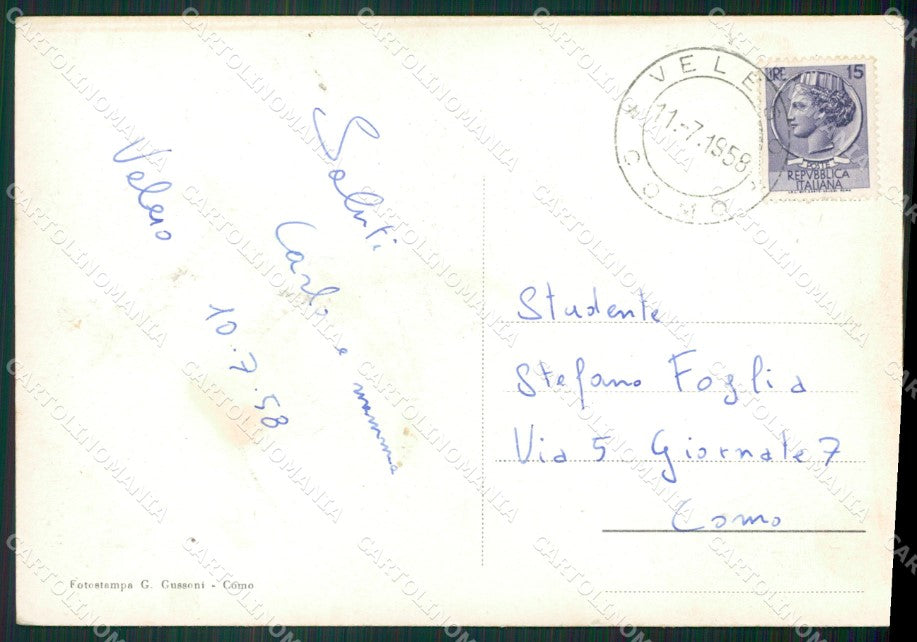 Veleso 10.7.58
Saluti
Carlo e mamma
VELESO
COMO
11.-7.1958
LIRE 15
POSTE
REPVBBLICA
ITALIANA
Studente
Stefano Foglia
Via 5 Giornate 7
Como
Fotostampa G. Gussoni - Como
CARTOLINOMANIA